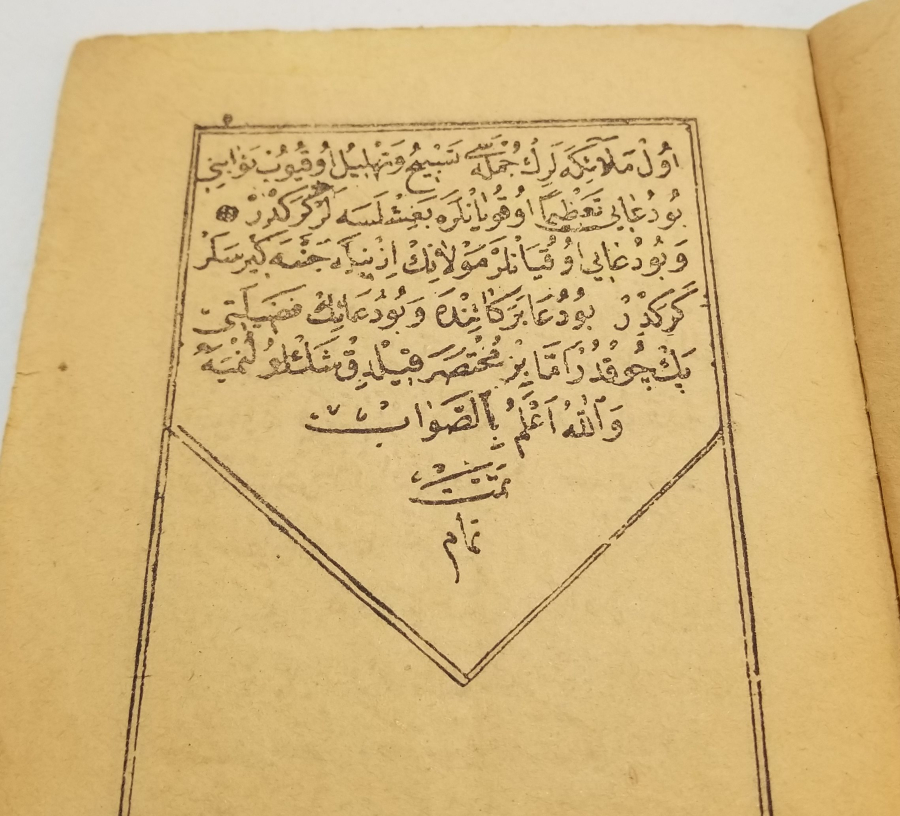 اول مَلَآئِكَه لَرِكْ جُمْلَه سِى تَسْبِيحْ وَتَهْلِيلْ اُوقُيُوبْ ثَوَابِنِى
بُودُعَايِى تَعْظِيمًا اُوقُويَانْلَرَه بَغِشْلَسَه لَرْ كَرَكْدُرْ
وَبُودُعَايِى اُوقُيَانْلَرْ مَوْلَانِكْ اِذْنِيلَه جَنَّتَه كِيرْسَه لَرْ
كَرَكْدُرْ بُودُعَا بَرَكَاتِنْدَه وَبُودُعَانِكْ فَضِيلَتِى
پَكْ چُوقْدُرْ اَمَّا بِزْ مُخْتَصَرْ قِيلْدِقْ
وَاللهُ اَعْلَمُ بِالصَّوَابْ
تمت
تمام